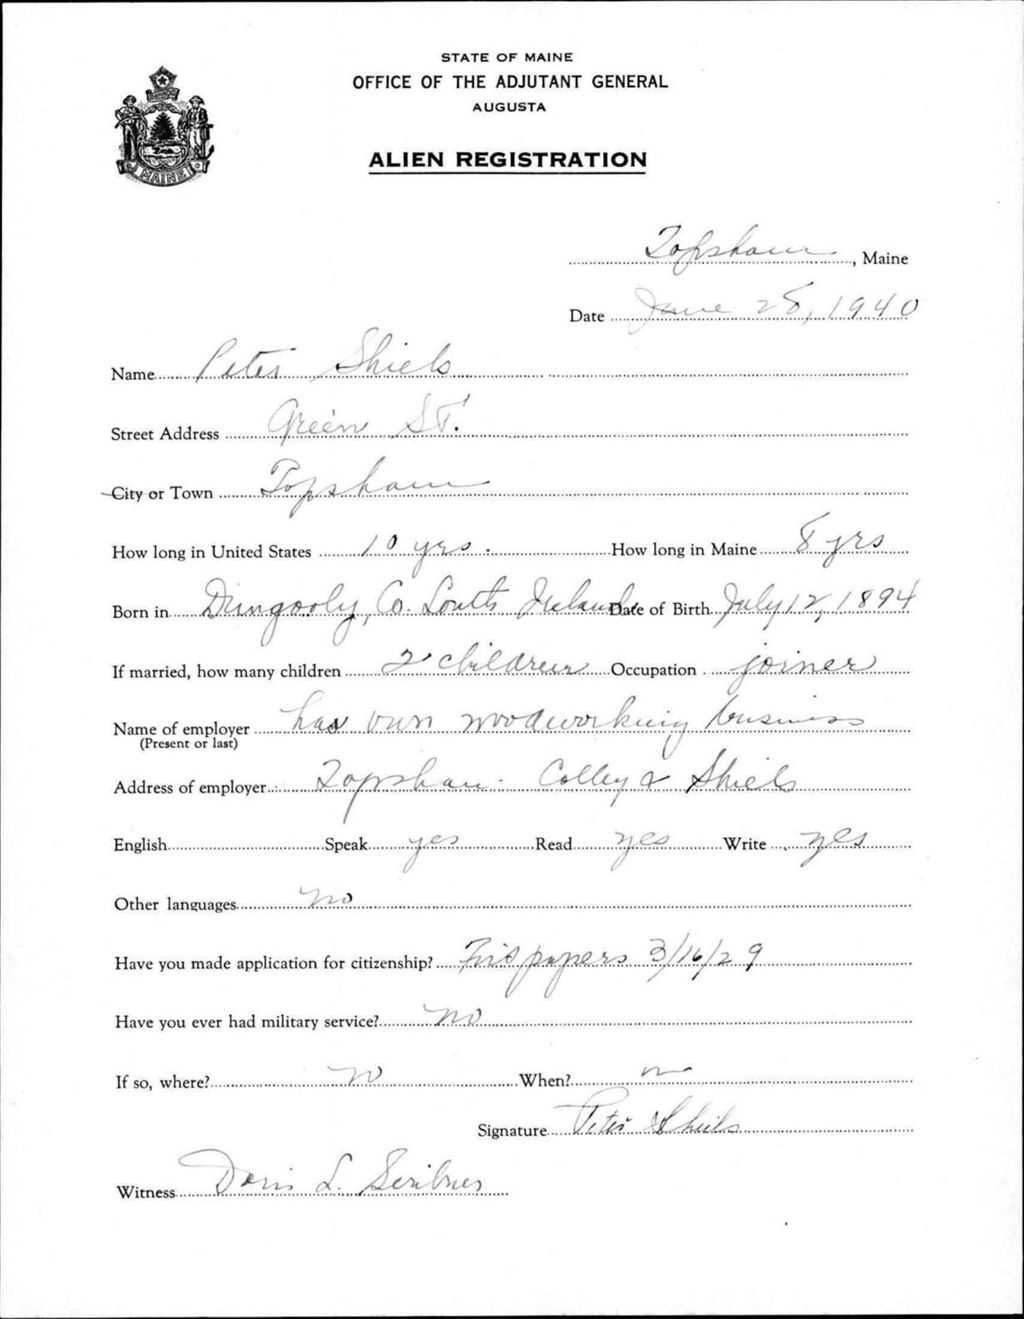 STATE OF MAINE
OFFICE OF THE ADJUTANT GENERAL
AUGUSTA
ALIEN REGISTRATION
MAINE
Topsham, Maine
Date June 28, 1940
Name Peter Shiels
Street Address Green St.
City or Town Topsham
How long in United States 10 yrs. How long in Maine 8 yrs
Born in Dungooly, Co. Louth Ireland Date of Birth July 12, 1894
If married, how many children 2 children Occupation joiner
Name of employer has own woodworking business
(Present or last)
Address of employer Topsham - Colley & Shiels
English Speak yes Read yes Write yes
Other languages no
Have you made application for citizenship? First papers 3/16/29
Have you ever had military service? no
If so, where? no When? no
Signature Peter Shiels
Witness Doris L. Scribner